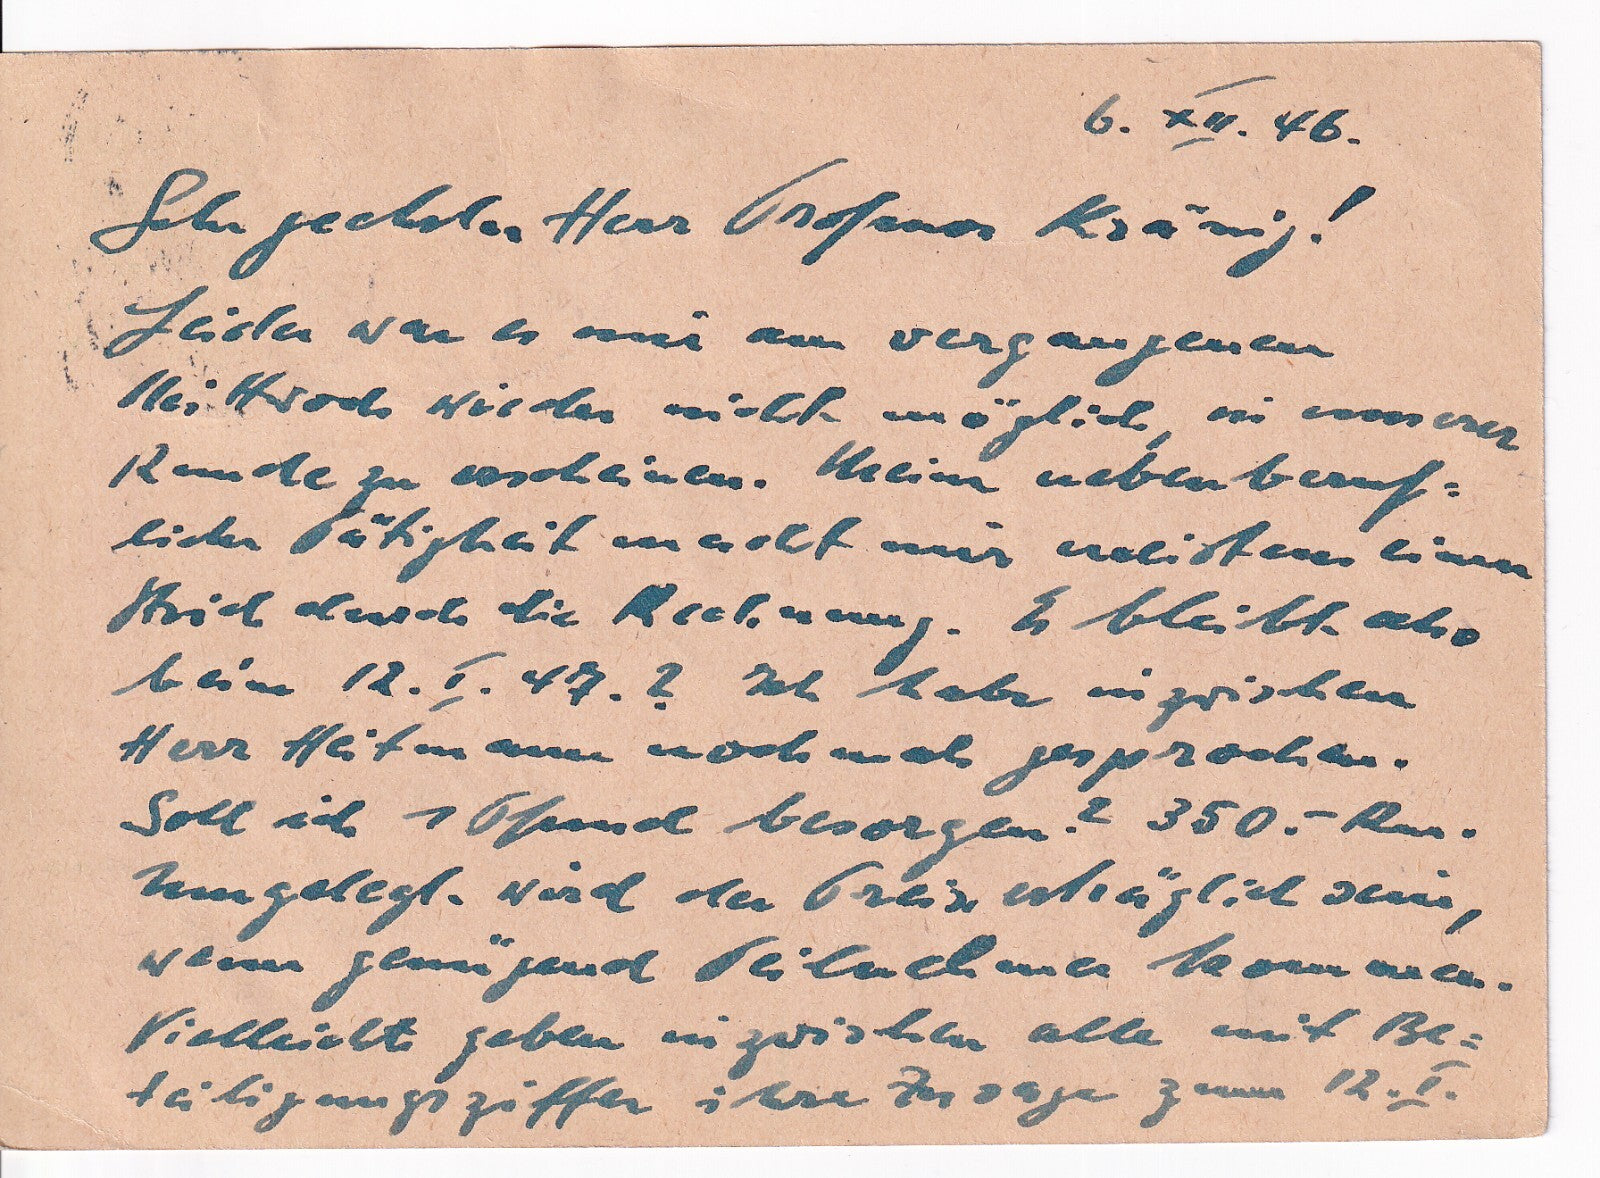 6. XII. 46.
Sehr geehrter Herr Professor Kränig!
Leider war es mir am vergangenen
Mittwoch wieder nicht möglich, in unserer
Runde zu erscheinen. Meine nebenberuf-
liche Tätigkeit macht mir meistens einen
Strich durch die Rechnung. Es bleibt also
beim 12. I. 47.? Ich habe inzwischen
Herr Heitmann nochmals gesprochen.
Soll ich 1 Pfund besorgen? 350.- Rm.
Umgelegt wird der Preis erträglich sein,
wenn genügend Teilnehmer kommen.
Vielleicht geben inzwischen alle mit Be-
teiligungsziffer ihre Zusage zum 12. I.